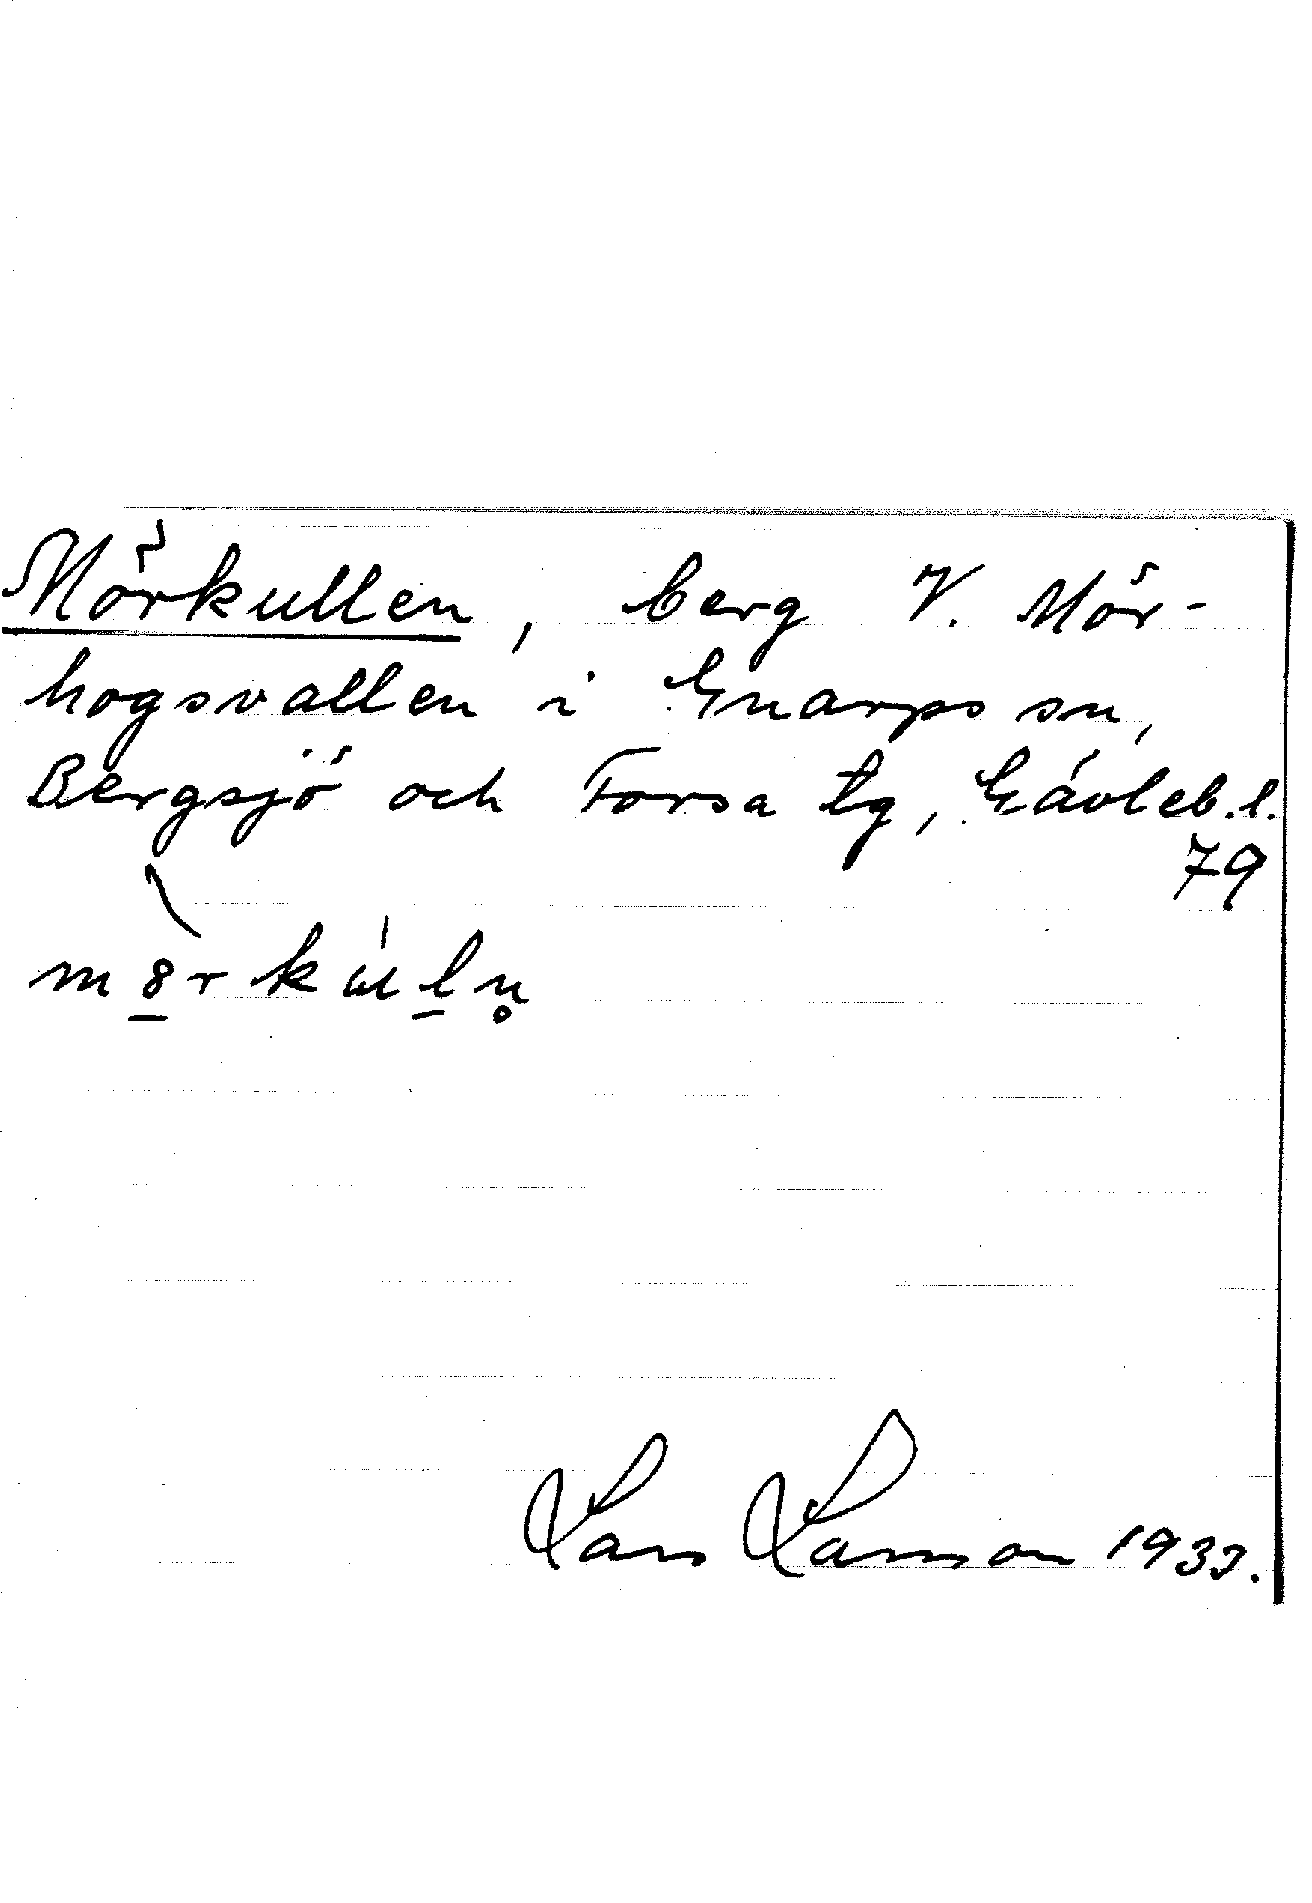 Mörkullen, berg V. Mör-
hogsvallen i Gnarps sn,
Bergsjö och Forsa tg, Gävleb.l.
79
Lars Larsson